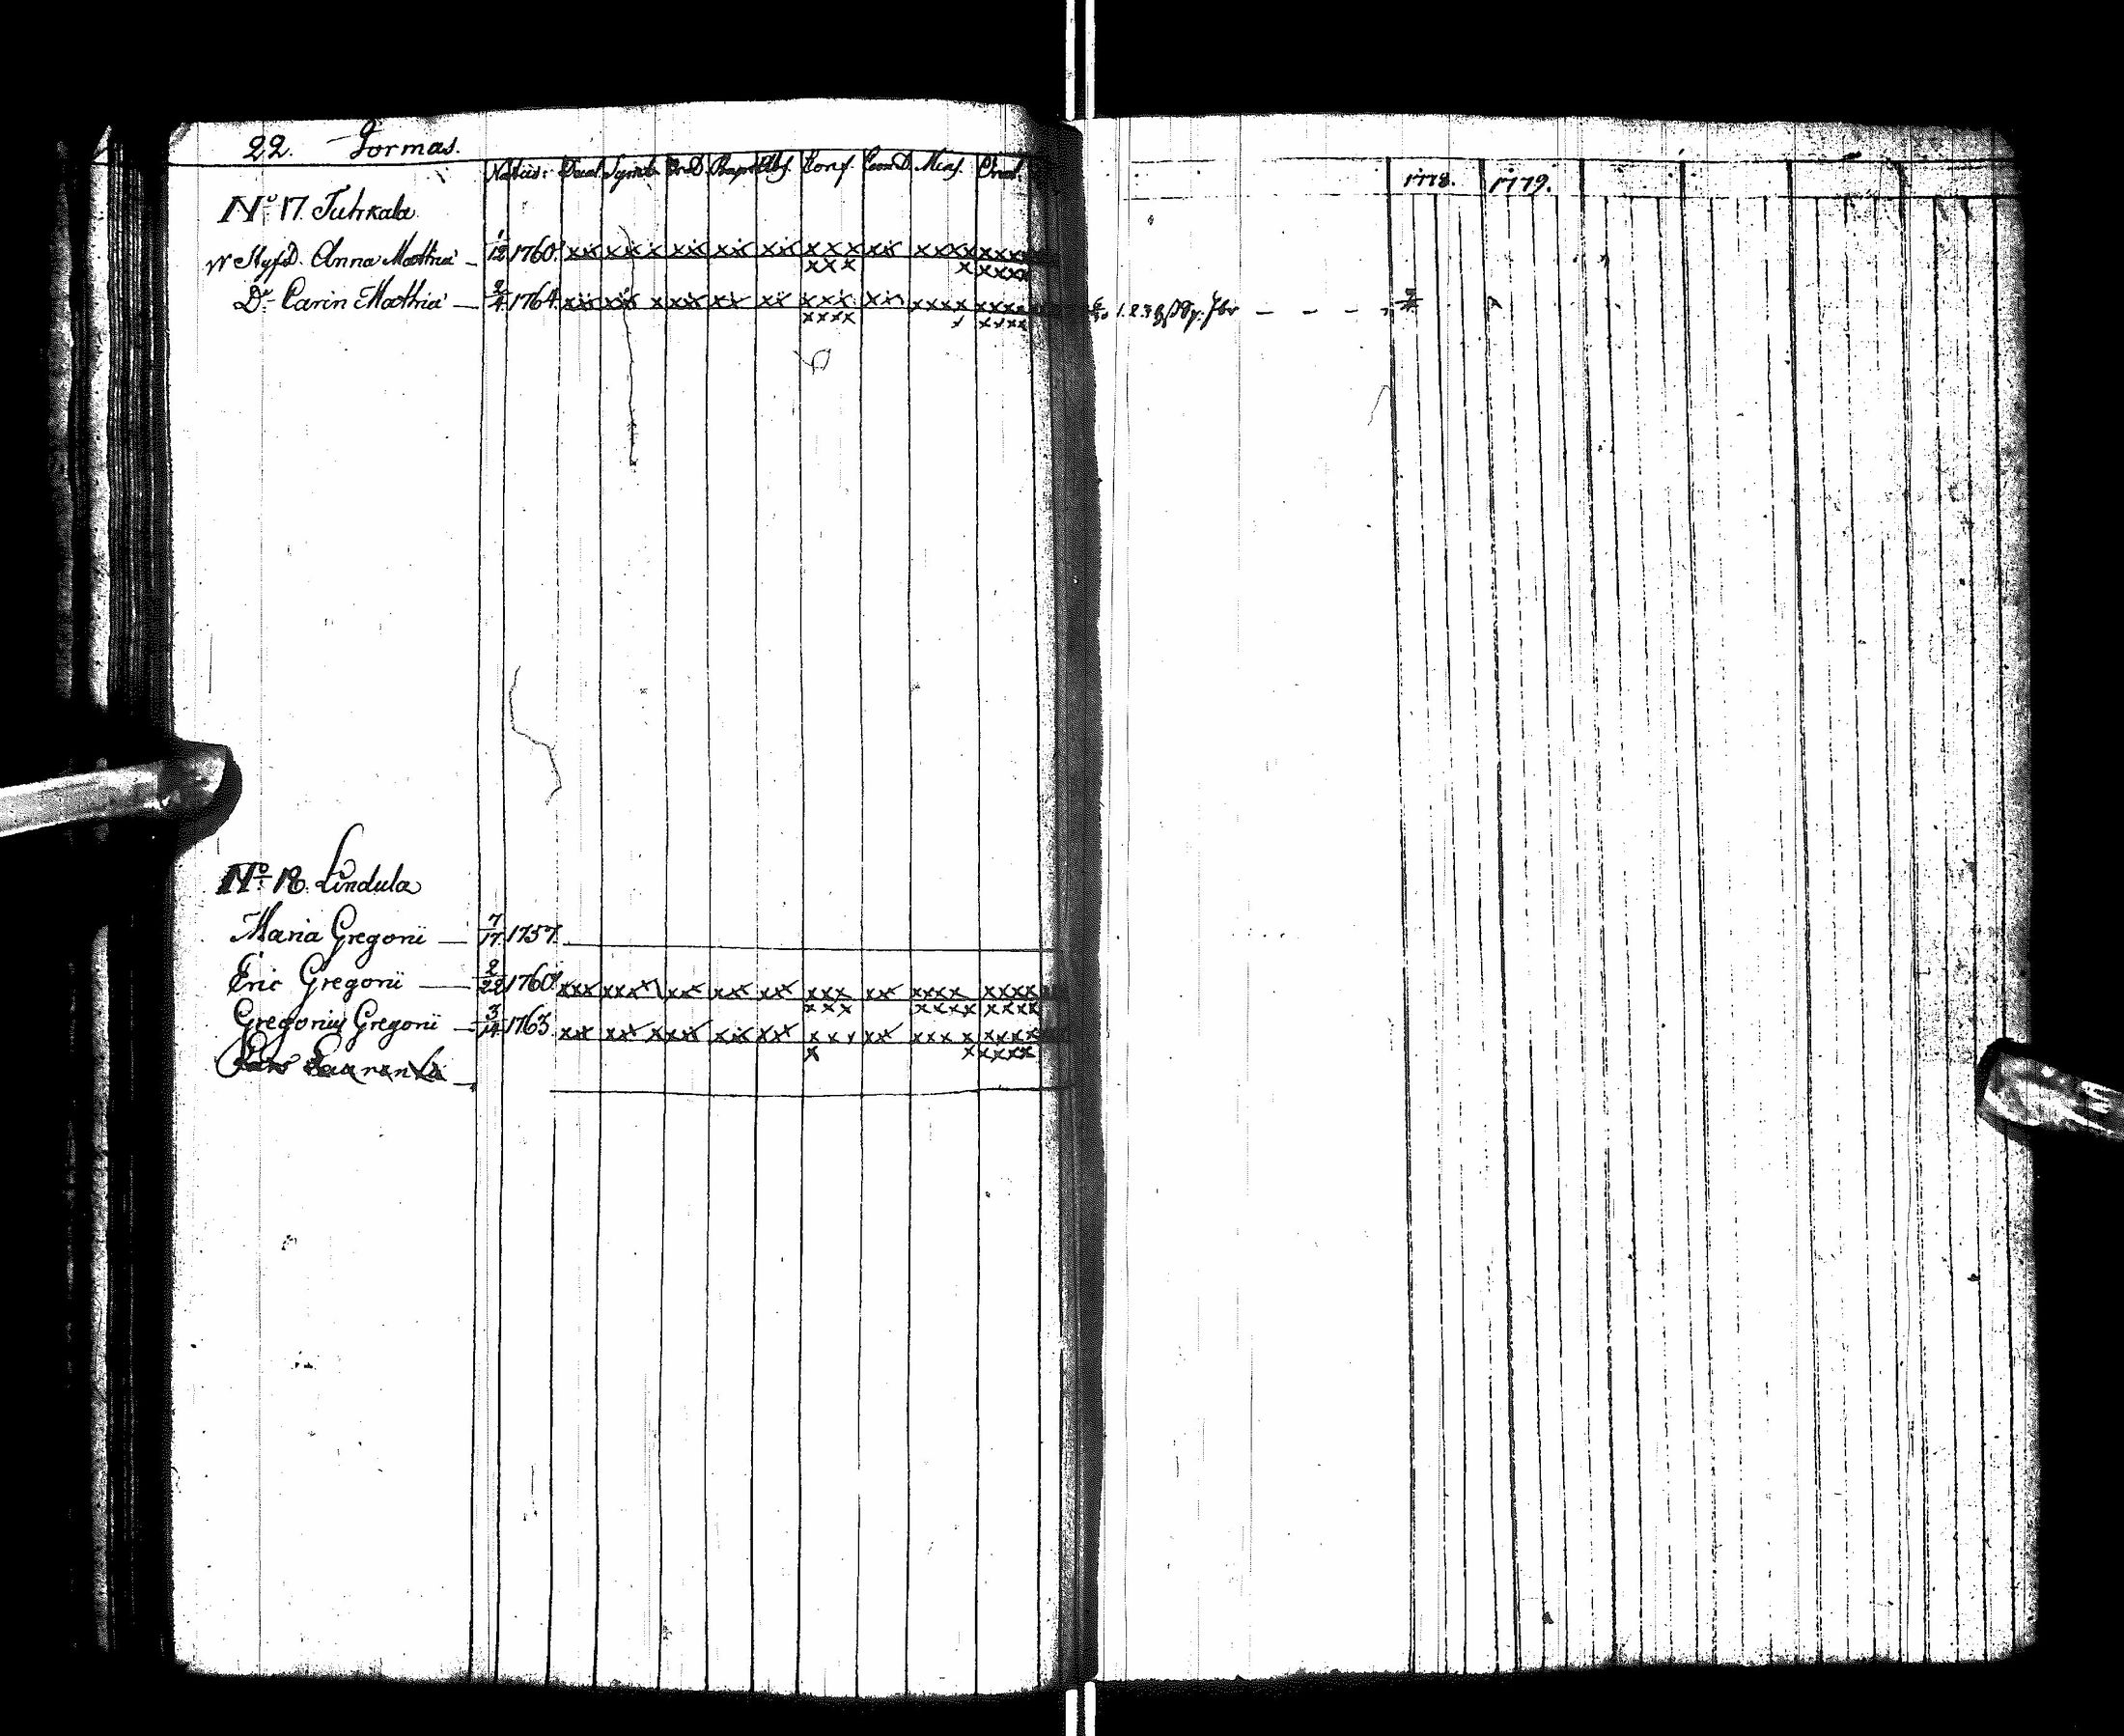 22. Tormas.
Natus: Decal. Symb. Or.D. Bapt. Abs. Conf. Coen.D. Mens. Orat. 1778. 1779.
No. 17. Tuhkala
StyfD. Anna Mathiæ 1/12 1760. xx xx x xx xx xx x x x xx x x x x x x x x
x x x x x x x x
Dr. Carin Mathiæ 2/4 1764. xx xx x xx xx xx x x x xx x x x x x x x x
x x x x x x x x x
No. 18. Lindula
Maria Gregorii 7/17 1757.
Eric Gregorii 2/22 1760. xxx xxxx xxx xxx xxx xxx xxx xxxx xxxx
x x x x x x x x x x x
Gregorius Gregorii 3/14 1763. xx xxx xxx xxx xxx x x x xxx x x x x x x x x
x x x x x x